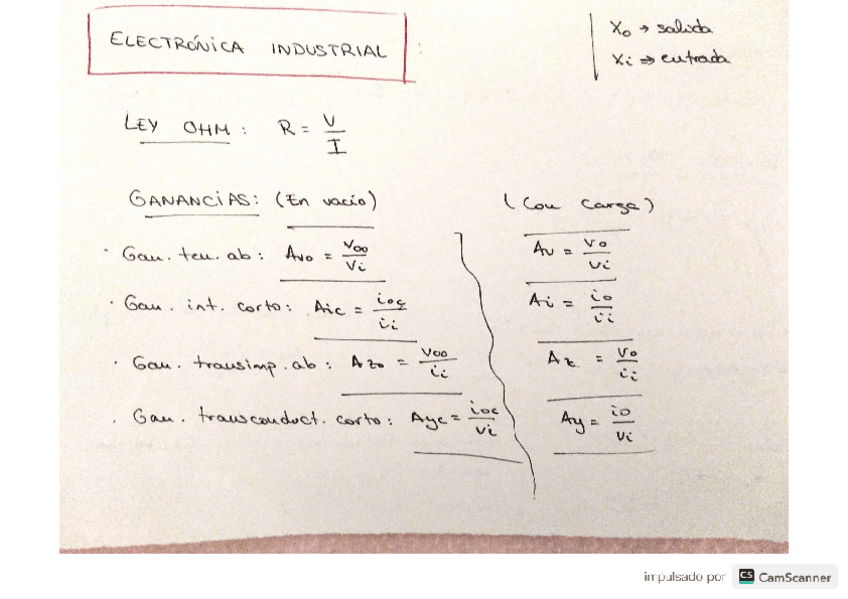 ELECTRÓNICA INDUSTRIAL :
Xo → salida
Xi ⇒ entrada
LEY OHM : R = V/I
GANANCIAS: (En vacío)
(Con carga)
· Gan. ten. ab : Avo = Voo/Vi
Av = Vo/Vi
· Gan. int. corto : Aic = ioc/ii
Ai = io/ii
· Gan. transimp. ab : Azo = Voo/ii
Az = Vo/ii
· Gan. transconduct. corto : Ayc = ioc/Vi
Ay = io/Vi
impulsado por CS CamScanner